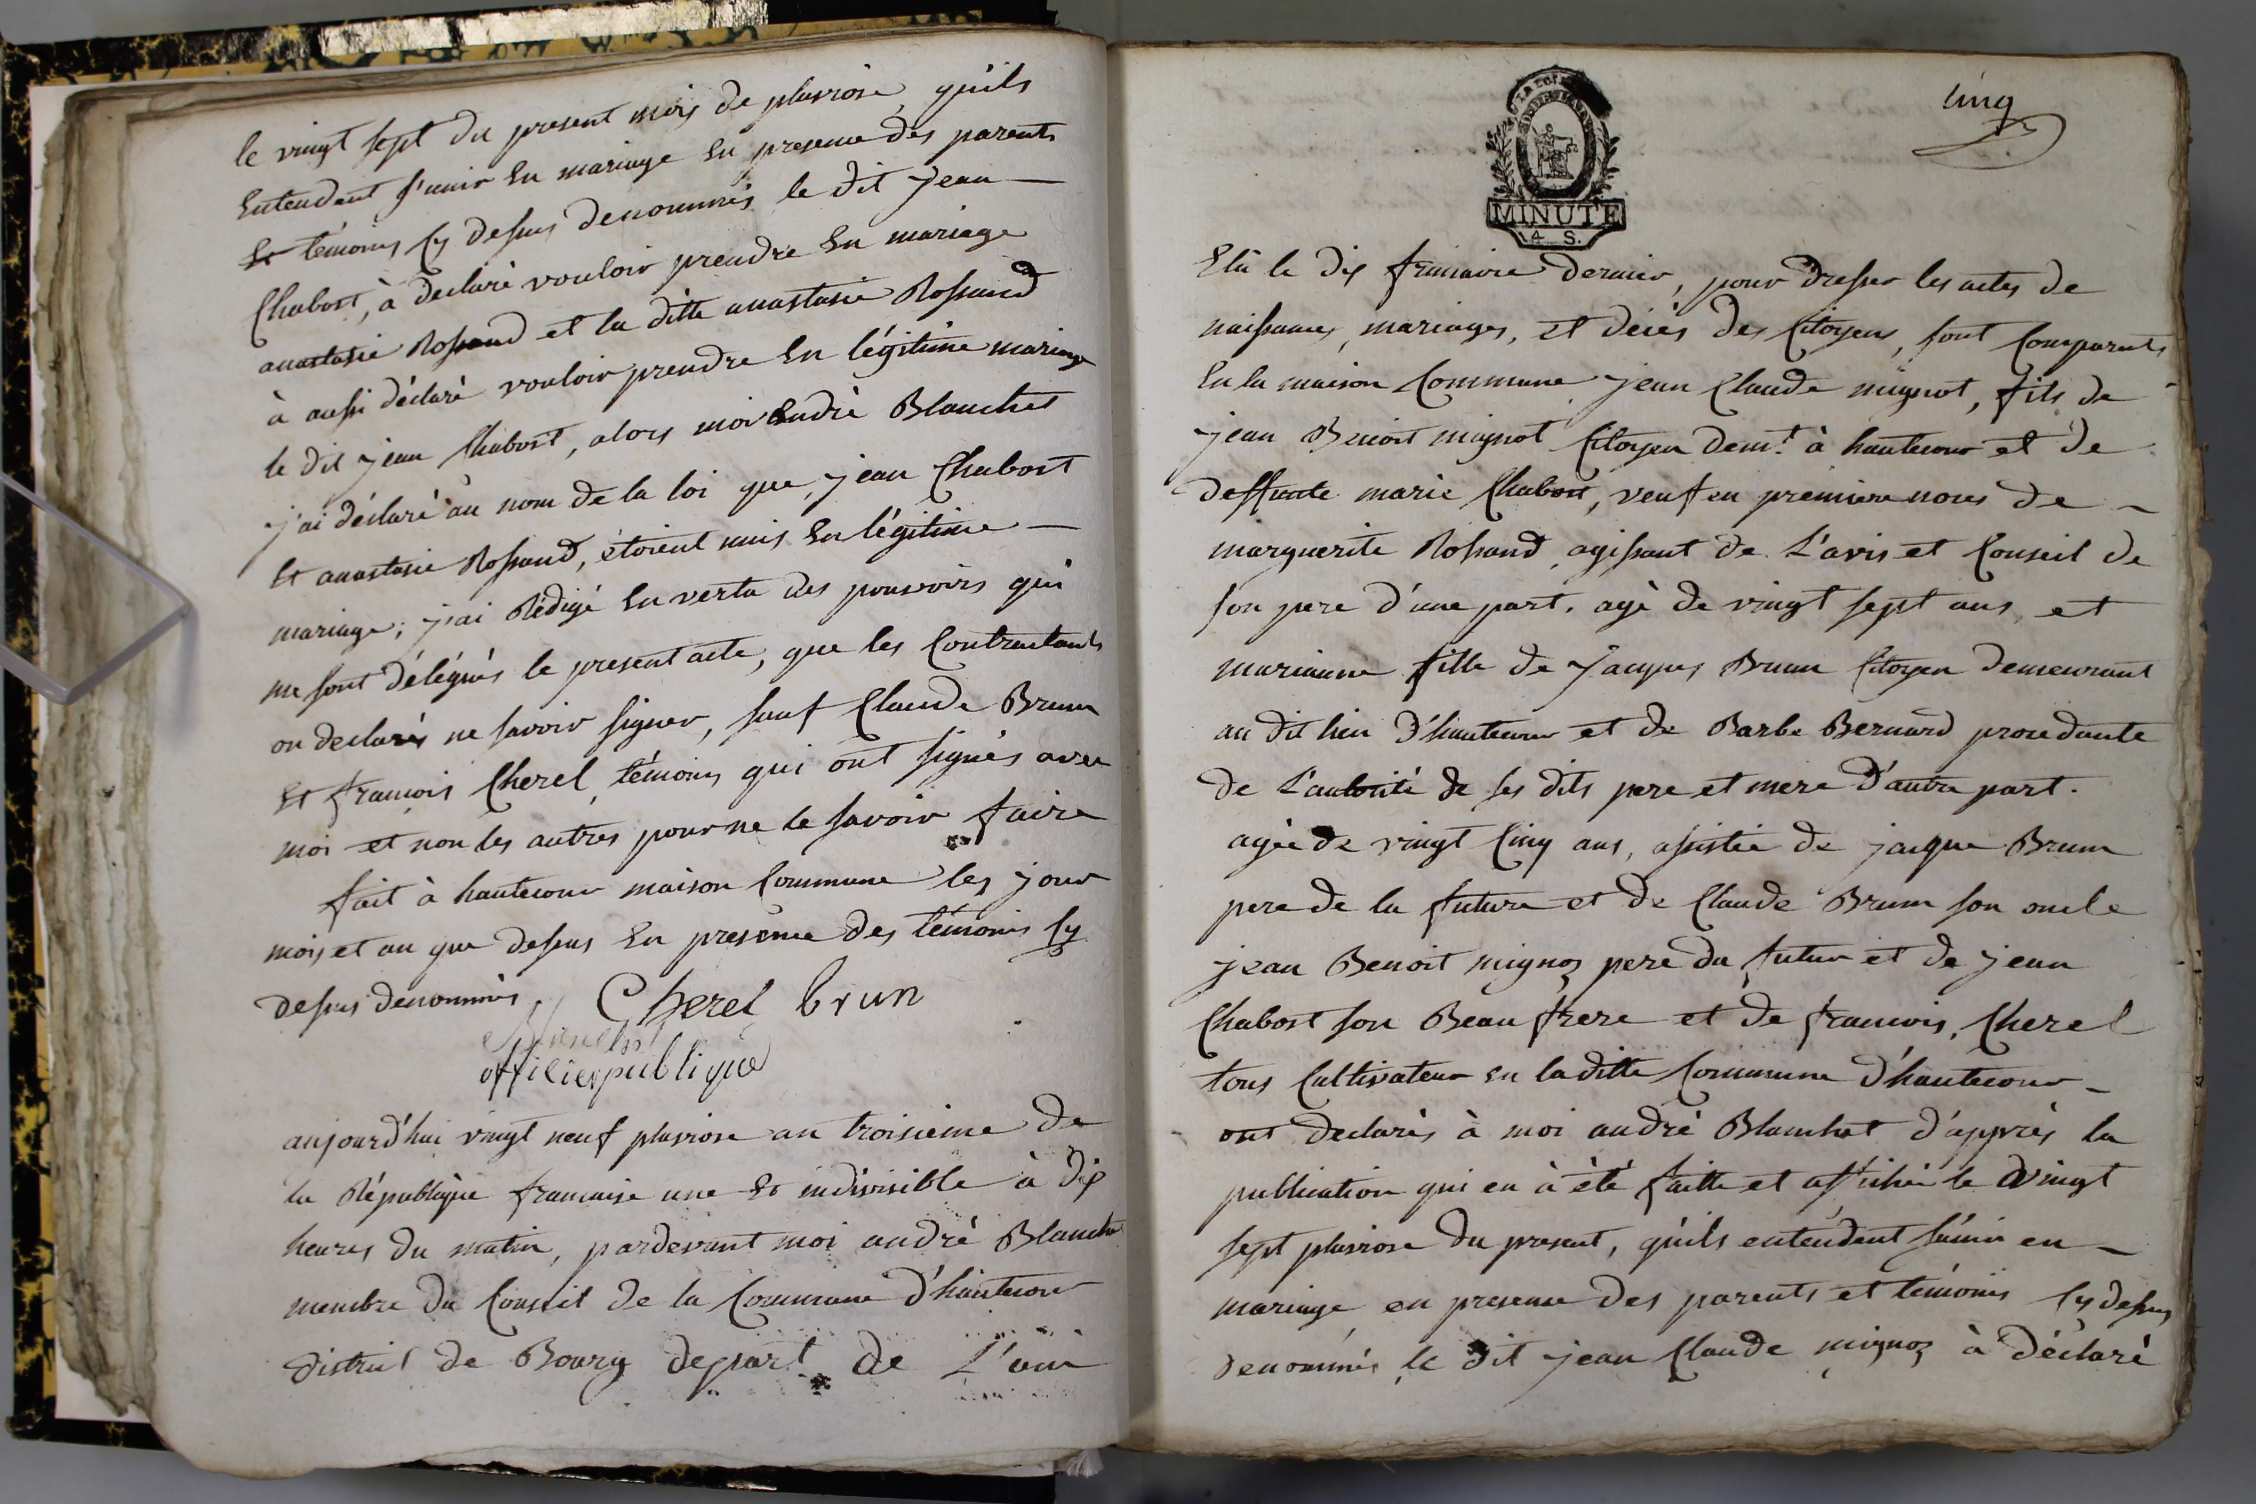 le vingt sept du present mois de pluviose, qu'ils
Entendent s'unir En mariage En presence des parents
Et témoins Cy dessus denommés le dit jean
Chabost, à declaré vouloir prendre En mariage
anastasie Rossand et la ditte anastasie Rossand
à aussi déclaré vouloir prendre En légitime mariage
le dit jean Chabost, alors moi André Blanchet
j'ai déclaré au nom de la loi que jean Chabost
Et anastasie Rossand, étoient unis En légitime
mariage; j'ai Rédigé En vertu des pouvoirs qui
me sont délégués le present acte, que les Contractants
on declarés ne savoir signer, sauf Claude Brunn
Et françois Cherel, témoins qui ont signés avec
moi et non les autres pour ne le savoir faire
fait à hautecour maison Commune les jour
mois et an que dessus En presence des témoins Cy
dessus denommés. Cherel brun
Blanchet
officier publique
aujourd'hui vingt neuf pluviose an troisieme de
la République francaise une Et indivisible à dix
heures du matin, pardevant moi andré Blanchet
membre du Conseil de la Commune d'hautecour
district de Bourg depart de L'ain
cinq
LA LOI
MINUTE
4 S.
Elû le dix frimaire dernier, pour dresser les actes de
naissances, mariages, et décès des Citoyens, sont Comparents
En la maison Commune jean Claude mignot, fils de
jean Benoit mignot Citoyen demt. à hautecour et de
deffunte marie Chabost, veuf en premiere noces de
marguerite Rossand, agissant de L'avis et Conseil de
son pere d'une part, agé de vingt sept ans, et
marianne fille de Jacques Brunn Citoyen demeurant
au dit lieu d'hautecour et de Barbe Bernard procedante
de L'autorité de ses dits pere et mere d'autre part.
agée de vingt Cinq ans, assistée de jacque Brunn
pere de la future et de Claude Brunn son oncle
jean Benoit mignoz pere du futur et de jean
Chabost son Beau frere et de francois, Cherel
tous Cultivateur En la ditte Commune d'hautecour
ont declarés à moi andré Blanchet d'apprès la
publication qui en à été faitte et affichée le vingt
sept pluviose du present, qu'ils entendent s'unir en
mariage en presence des parents et témoins Cy dessus
denommés, le dit jean Claude mignoz à déclaré